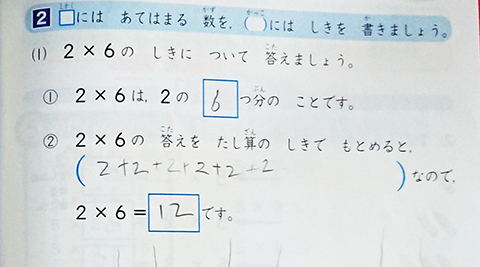 2 □には あてはまる 数を，( )には しきを 書きましょう。
(1) 2×6の しきに ついて 答えましょう。
① 2×6は，2の 6 つ分の ことです。
② 2×6の 答えを たし算の しきで もとめると，
(2+2+2+2+2+2)なので，
2×6=12です。